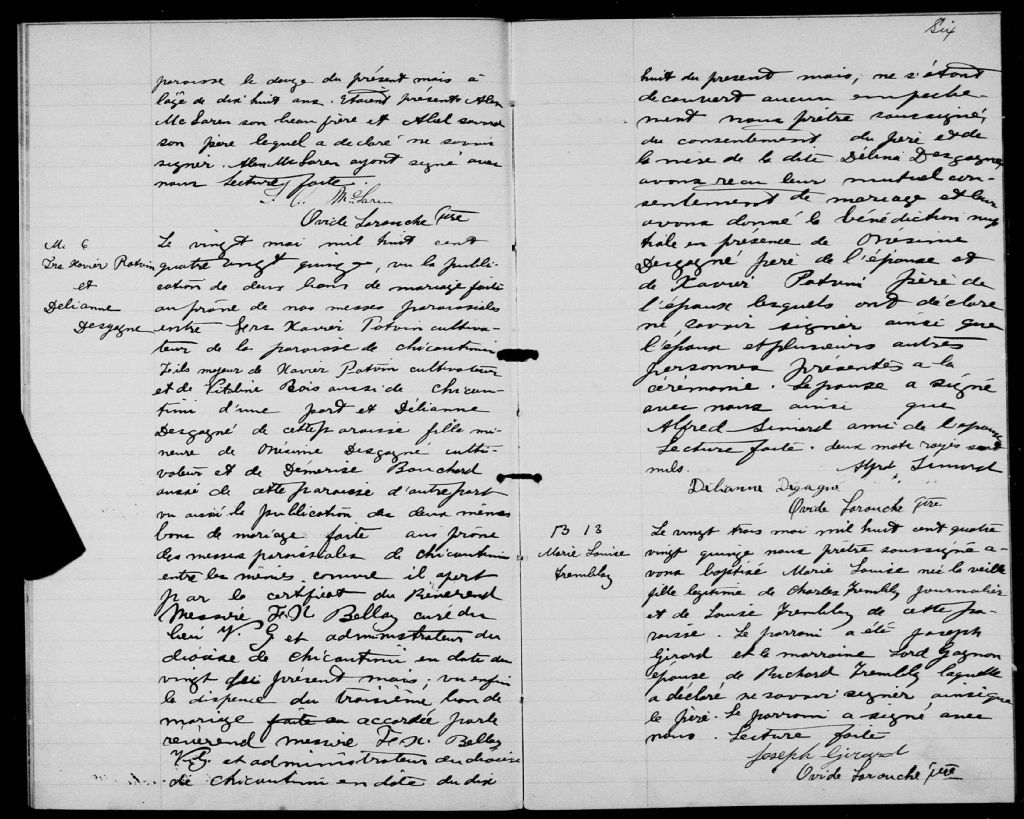 paroisse le douze du présent mois à
l'âge de dix huit ans. Etaient présents Alex
McLaren son beau frère et Abel
son père lequel a déclaré ne savoir
signer. Alex McLaren ayant signé avec
nous Lecture faite.
McLaren
Ovide Larouche Ptre
M. 6
Frs Xavier Potvin
et
Délianne
Desgagné
Le vingt mai mil huit cent
quatre vingt quinze, vu la publi-
cation de deux bans de mariage faite
au prône de nos messes paroissiales
entre Frs Xavier Potvin cultiva-
teur de la paroisse de Chicoutimi
Fils majeur de Xavier Potvin cultivateur
et de Vitaline Bois aussi de Chicou-
timi d'une part et Délianne
Desgagné de cette paroisse fille mi-
neure de Onésime Desgagné culti-
vateur et de Démerise Bouchard
aussi de cette paroisse d'autre part
vu aussi la publication des deux mêmes
bans de mariage faite au prône
des messes paroissiales de Chicoutimi
entre les mêmes comme il apert
par le certificat du Révérend
Messire F. X Belley curé du
lieu V. G et administrateur du
diocèse de Chicoutimi en date du
vingt du présent mois; vu enfin
la dispence du troisième ban de
mariage faite en accordée par le
révérend messire F. X. Belley
V.G. et administrateur du diocèse
de Chicoutimi en date du dix
Six
huit du present mois, ne s'étant
découvert aucun empêche-
ment nous prêtre soussigné,
du consentement du père et de
la mère de la dite Desgagné,
avons reçu leur mutuel con-
sentement de mariage et leur
avons donné la bénédiction nup
tiale en présence de Onésime
Desgagné père de l'épouse et
de Xavier Potvin père de
l'époux lesquels ont déclaré
ne savoir signer ainsi que
l'époux et plusieurs autres
personnes présentes a la
cérémonie. Lepouse a signé
avec nous ainsi que
Alfred Simard ami de l'épouse
Lecture faite. deux mots rayés sont
nuls. Alfd Simard
Délianne Degagné
Ovide Larouche Ptre
B 13
Marie Louise
Tremblay
Le vingt trois mai mil huit cent quatre
vingt quinze nous prêtre soussigné a-
vons baptisé Marie Louise née la veille
fille légitime de Charles Tremblay journalier
et de Louise Tremblay de cette pa-
roisse. Le parrain a été Joseph
Girard et la marraine Gagnon
épouse de Richard Tremblay laquelle
a déclaré ne savoir signer ainsi que
le père. Le parrain a signé avec
nous. Lecture faite
Joseph Girard
Ovide Larouche Ptre